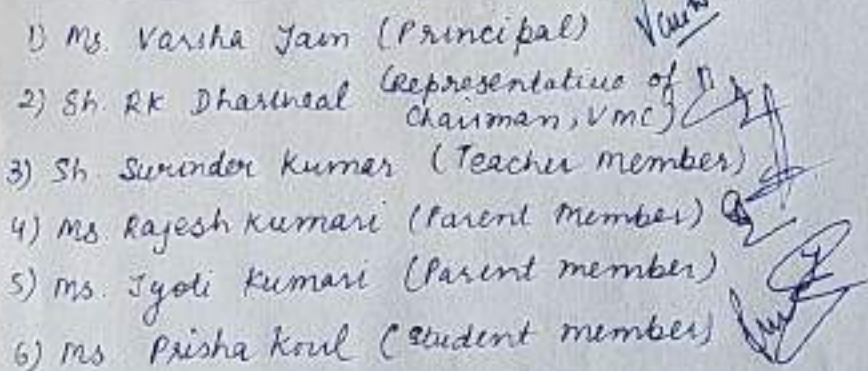 1) Ms. Varsha Jain (Principal)
2) Sh. RK (Representative of
Chairman, VMC)
3) Sh. Surinder Kumar (Teacher member)
4) Ms Rajesh Kumari (Parent Member)
5) Ms. Jyoti Kumari (Parent member)
6) Ms Prisha Koul (Student member)